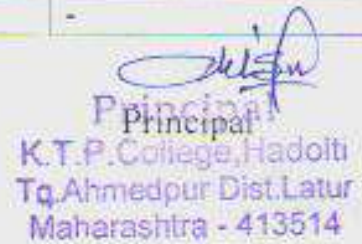 -
Principal
Principal
K.T.P.College,Hadolti
Tq.Ahmedpur Dist.Latur
Maharashtra - 413514